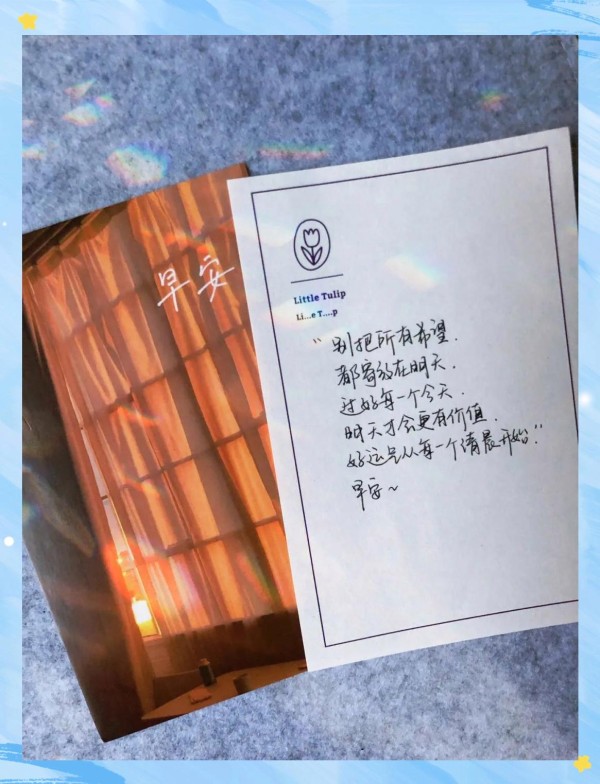 早安
Little Tulip
Li...e T....p
“别把所有希望.
都寄放在明天.
过好每一个今天.
明天才会更有价值.
好运是从每一个清晨开始!”
早安~